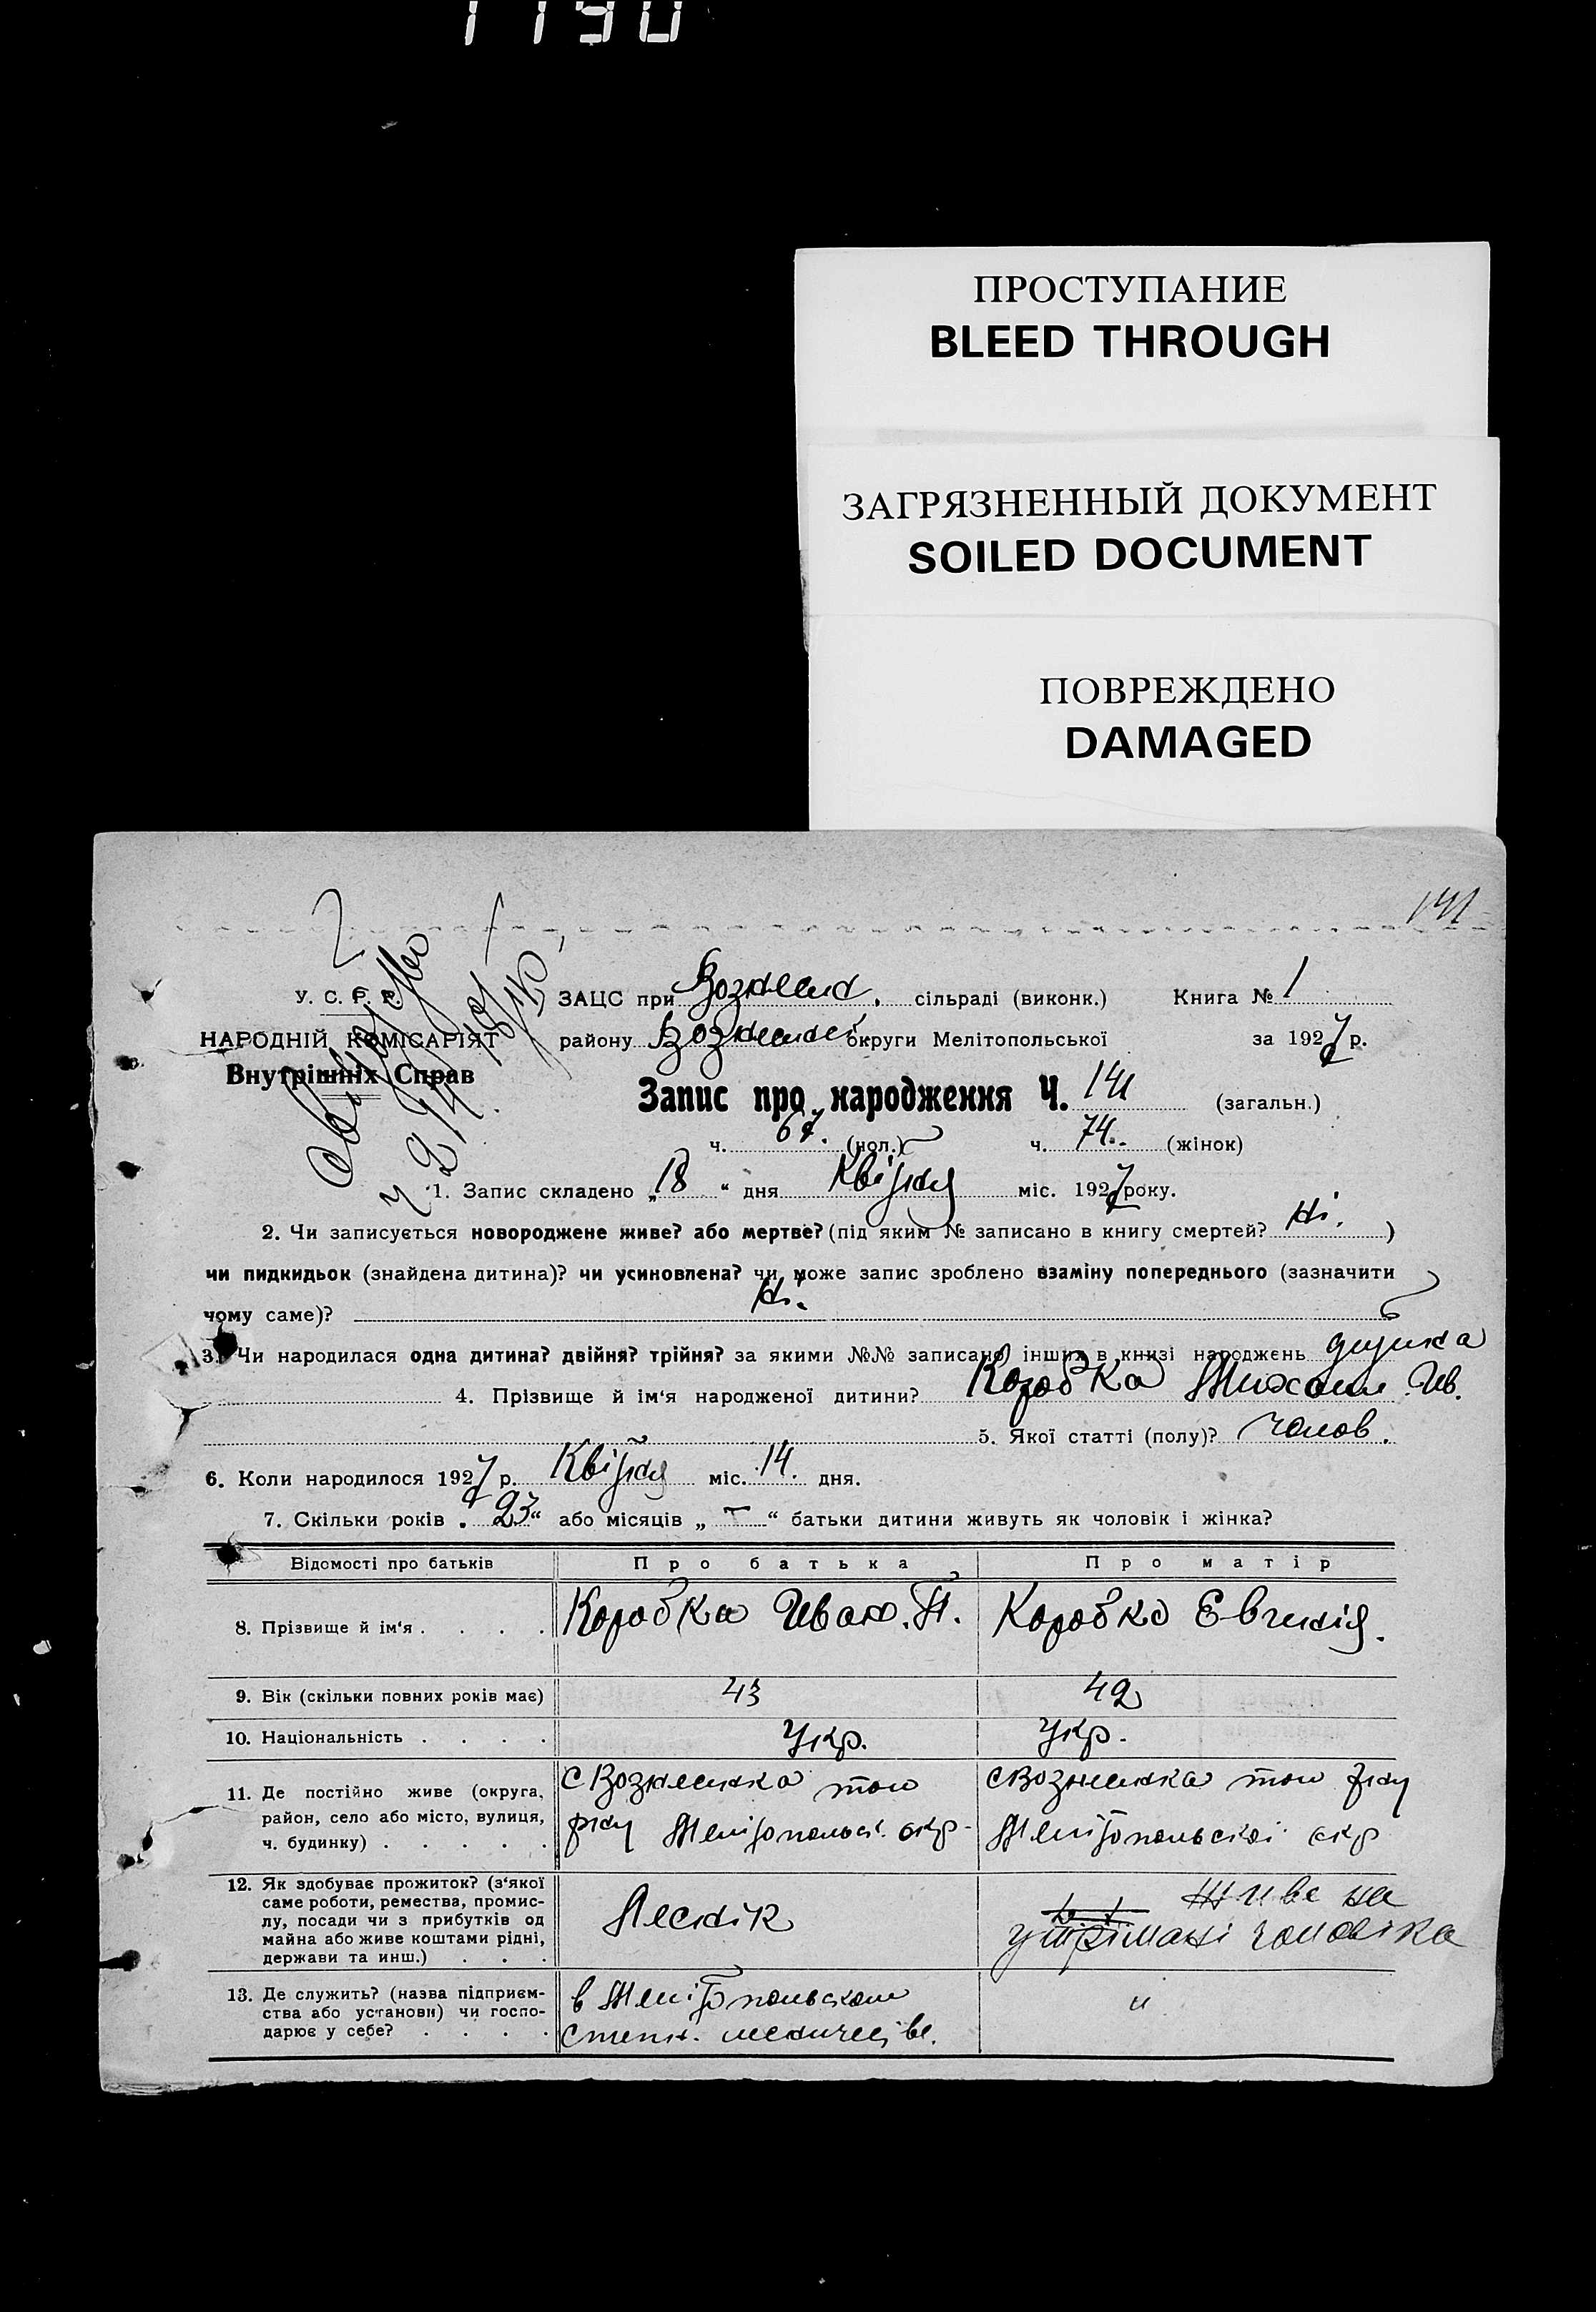 1190
ПРОСТУПАНИЕ
BLEED THROUGH
ЗАГРЯЗНЕННЫЙ ДОКУМЕНТ
SOILED DOCUMENT
ПОВРЕЖДЕНО
DAMAGED
141
У. С. Р. Р.
НАРОДНІЙ КОМІСАРІЯТ
Внутрішніх Справ
ЗАЦС при Вознесенс. сільраді (виконк.) Книга № 1
району округи Мелітопольської за 1927 р.
Запис про народження Ч. 141 (загальн.)
ч. 67. (пол.) ч. 74. (жінок)
1. Запис складено „18“ дня Квітня міс. 1927 року.
2. Чи записується новороджене живе? або мертве? (під яким № записано в книгу смертей? Ні. )
чи пидкидьок (знайдена дитина)? чи усиновлена? чи може запис зроблено взаміну попереднього (зазначити
чому саме)? Ні.
3. Чи народилася одна дитина? двійня? трійня? за якими №№ записано інших в книзі народжень дитина
4. Прізвище й ім'я народженої дитини? Коробка Михаил Ив.
5. Якої статті (полу)? чолов.
6. Коли народилося 1927 р. Квітня міс. 14. дня.
7. Скільки років „23“ або місяців „—“ батьки дитини живуть як чоловік і жінка?
Відомості про батьків Про батька Про матір
8. Прізвище й ім'я . . . . Коробка Иван. П. Коробка Евгенія.
9. Вік (скільки повних років має) 43 42
10. Національність . . . . Укр. Укр.
11. Де постійно живе (округа,
район, село або місто, вулиця,
ч. будинку) . . . . .
с Вознесенка того
рну Мелітопольск. окр.
с Вознесенка того рну
Мелітопольскоі окр
12. Як здобуває прожиток? (з'якої
саме роботи, ремества, промис-
лу, посади чи з прибутків од
майна або живе коштами рідні,
держави та инш.) . . .
Леснік
Живе на
утрімані чоловіка
13. Де служить? (назва підприєм-
ства або установи) чи госпо-
дарює у себе? . . . .
в Мелітопольском
степн. лесничестве.
"